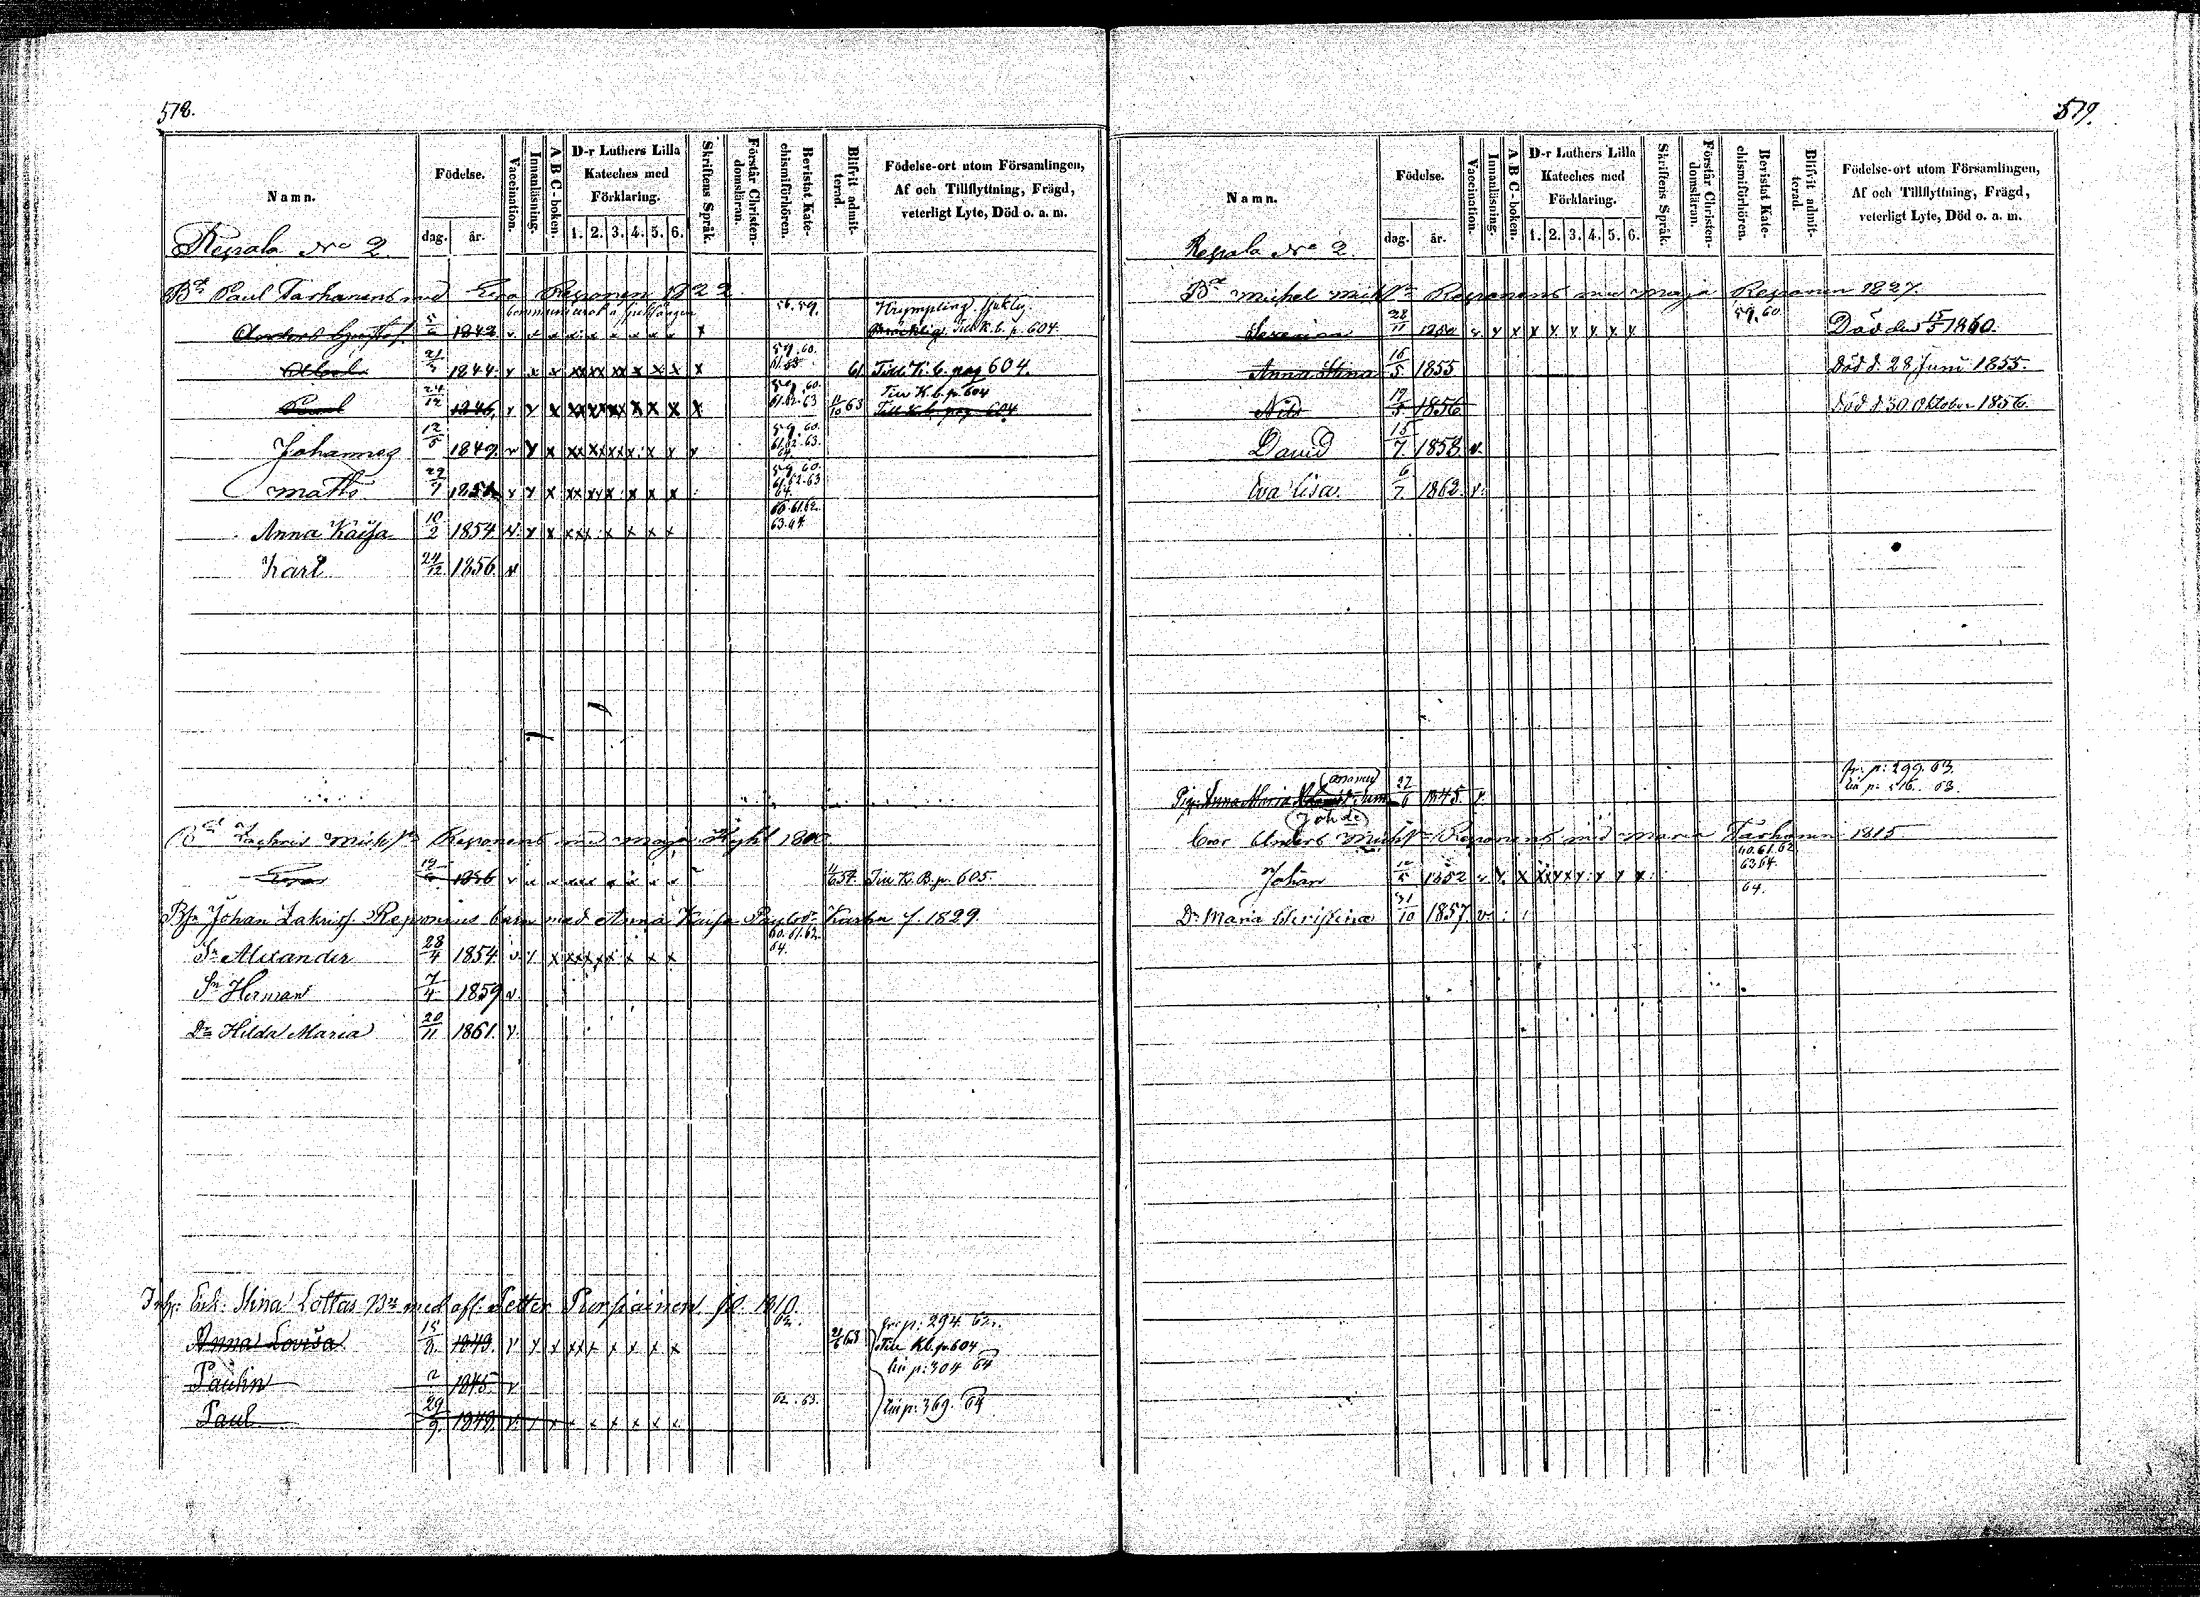 578.
Namn.
Födelse.
dag. år.
Vaccination.
Innanläsning.
A B C-boken.
D-r Luthers Lilla Kateches med Förklaring.
1. 2. 3. 4. 5. 6.
Skriftens Språk.
Förstår Christendomsläran.
Bevistat Katechismiförhören.
Blifvit admitterad.
Födelse-ort utom Församlingen, Af och Tillflyttning, Frägd, veterligt Lyte, Död o. a. m.
Repola No 2.
Bn Paul Tarhanens med Eva Reponen 1822
56.59. Krympling
5/6 1842 v x x x x x x x x Till K. b. p. 604.
21/3 1844 v x x xx xx xx x x x x 59.60. 61 Till K. b. pag 604.
Paul 24/12 1846 v y x x x x x x x x 59.60. 61.62.63 11/10 63 Till K. b. p. 604
Till K. b. pag. 604
Johannes 12/5 1849 v y x xx xx xx x x y 59.60. 61.62.63. 64.
Matts 29/7 1851 v y x xx xx x x x x 59.60. 61.62.63 64.
Anna Kaisa 10/2 1854 v y x xxx x x x x 60.61.62. 63.64.
Karl 24/12 1856 v
Zachris Michss Reponens med Maja Kyhl 1800
Eva 19/ 1836 v x x x x x x x x 54 Till K. B. p. 605
Johan Zakriss. Reponens barn med Anna Kaisa Paulsdr Karhu f. 1829.
Sn Alexander 28/4 1854 v y x xxx xx x x x 60.61.62. 64.
Sn Herman 7/4 1859 v.
Dr Hilda Maria 20/11 1861. v.
Inh: Enk. Stina Lottas Bn med afl. Petter Pursiainen fö. 1810.
Anna Lovisa 15/8 1843 v y x xx x x x x x 62. 63 fr. p: 294. 62.
Till Kb. p. 604
Paulin 2/ 1845 v till p: 304 64
Paul 29/9 1848 v x x x x x x x x 62.63. till p: 369. 64
579.
Namn.
Födelse.
dag. år.
Vaccination.
Innanläsning.
A B C-boken.
D-r Luthers Lilla Kateches med Förklaring.
1. 2. 3. 4. 5. 6.
Skriftens Språk.
Förstår Christendomsläran.
Bevistat Katechismiförhören.
Blifvit admitterad.
Födelse-ort utom Församlingen, Af och Tillflyttning, Frägd, veterligt Lyte, Död o. a. m.
Repola No 2.
Bn Michel Michss Reponens med Maja Reponen 1827.
28/11 1850 v y x x x x x x x 59.60 Död den 15/5 1860.
Anna Stina 16/5 1855 Död d. 28 Juni 1855.
Nils 19/5 1856 Död d. 30 Oktober 1856.
David 15/7 1858 v.
Eva Lisa. 6/7 1862. v.
Anna Maria 27/6 1845. v. fr. p: 299. 63.
till p: 516. 63.
Anders Michss Reponens med Maria Tarhanen 1815
Johan 12/5 1852 v. y. x xx y x y y y x 60.61.62 63.64.
Dr Maria Christina 31/10 1857. v. 64.